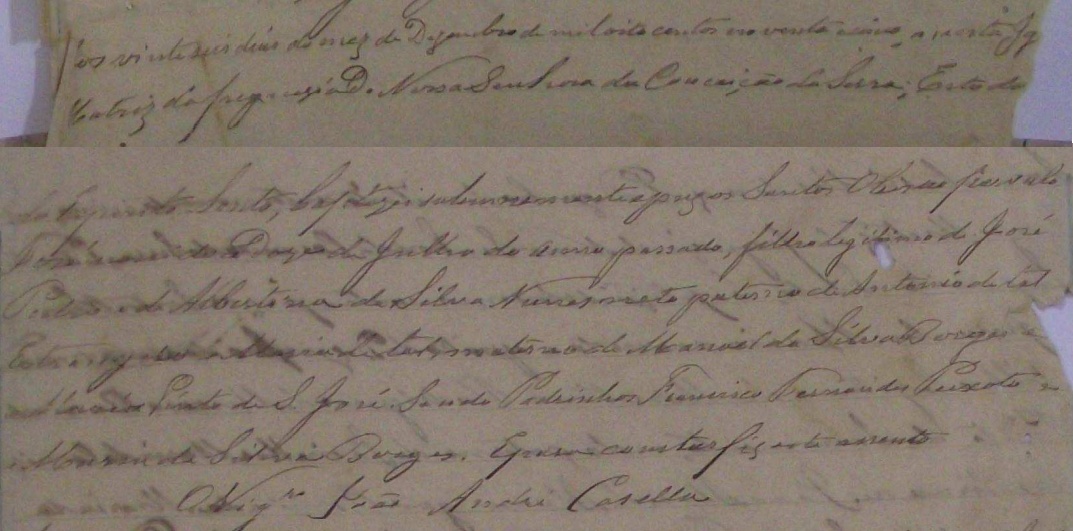 Aos vinte seis dias do mez de Dezembro de mil oito centos noventa e cinco, n'esta Ig
Matriz da freguezia D. Nossa Senhora da Conceição da Serra, Estado
do Espirito Santo, baptizei solemnemente e puz os Santos Oleos ao parvulo
nascido a Doze de Julho do anno passado, filho legitimo de José
Pedro e de Albertina da Silva Nunes, neto paterno de Antonio de tal
e Maria de tal, materno de Manoel da Silva Borges e
Maria Pinto de S. José. Sendo Padrinhos Francisco Fernandes Peixoto e
Maria da Silva Borges. E para constar fiz este assento
O Vigr.º João André Casella